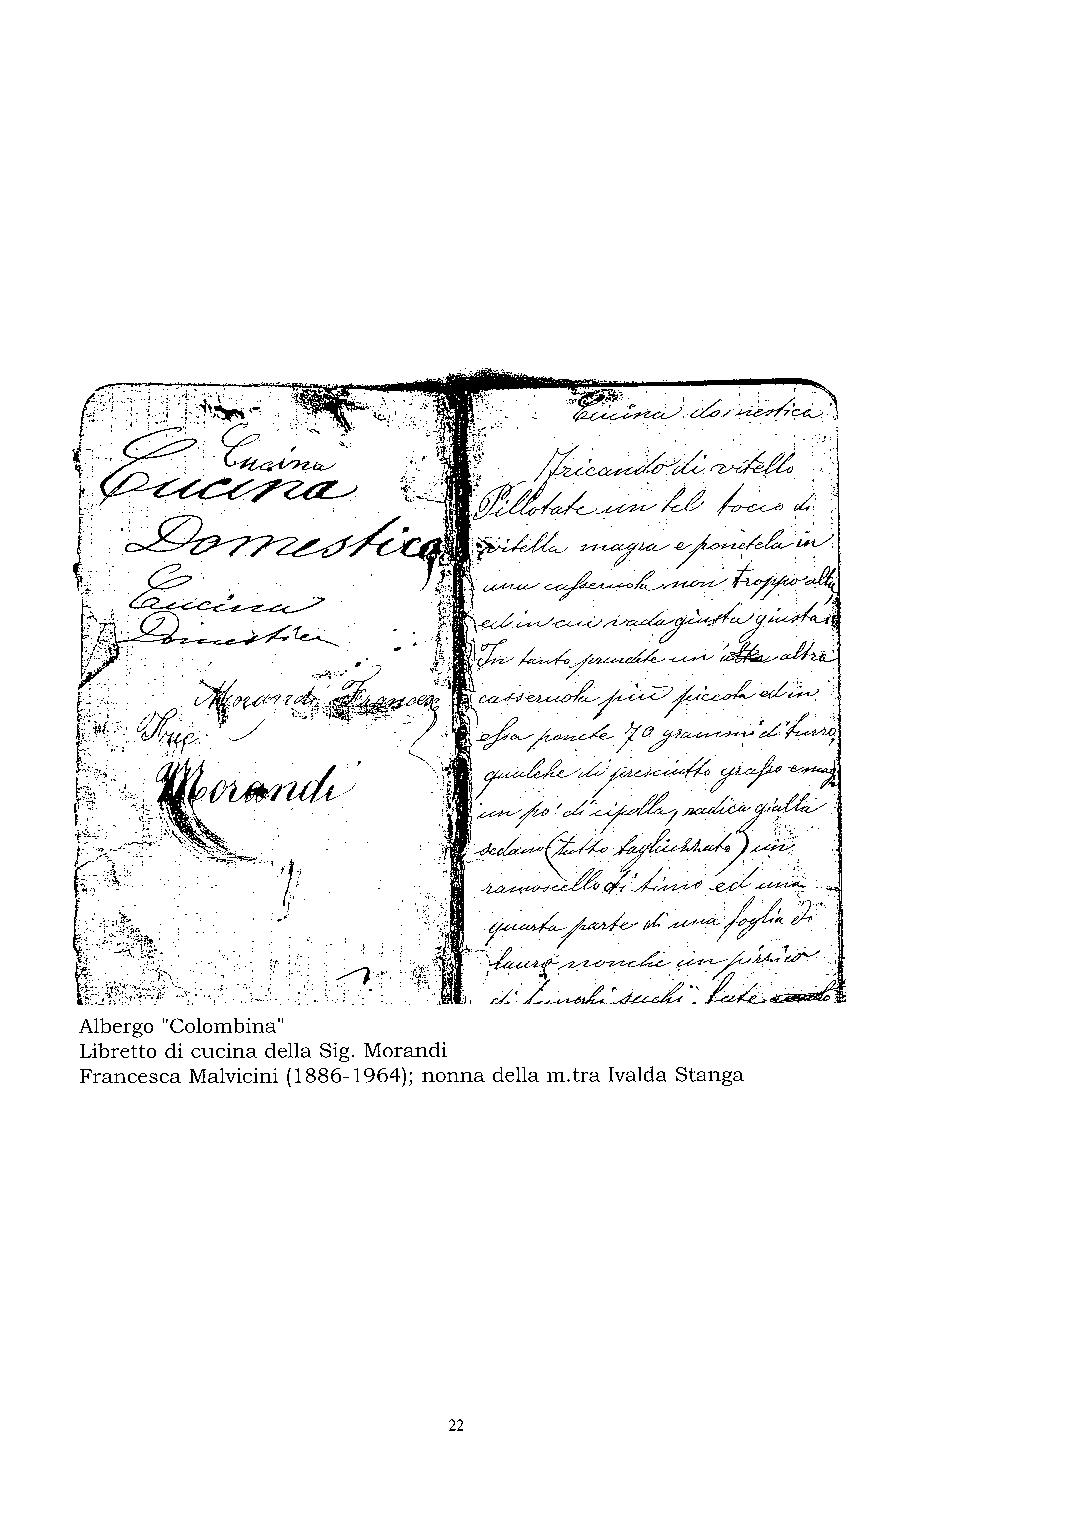 Cucina
Cucina
Domestica
Cucina
Domestica
Morandi Francesca
Morandi
Cucina domestica
Fricandò di vitello
Pillotate un bel tocco di
vitella magra e ponetela in
una casseruola non troppo alta
ed in cui vada giusta giusta
In tanto prendete un altra
casseruola più piccola ed in
essa ponete 70 grammi di burro,
qualche di presciutto grasso e mag
un po' di cipolla, radica gialla
sedano (tutto tagliuzzato) un
ramoscello di timo ed una
quarta parte di una foglia di
lauro nonchè un pizzico
di funghi secchi. Fate
Albergo "Colombina"
Libretto di cucina della Sig. Morandi
Francesca Malvicini (1886-1964); nonna della m.tra Ivalda Stanga
22